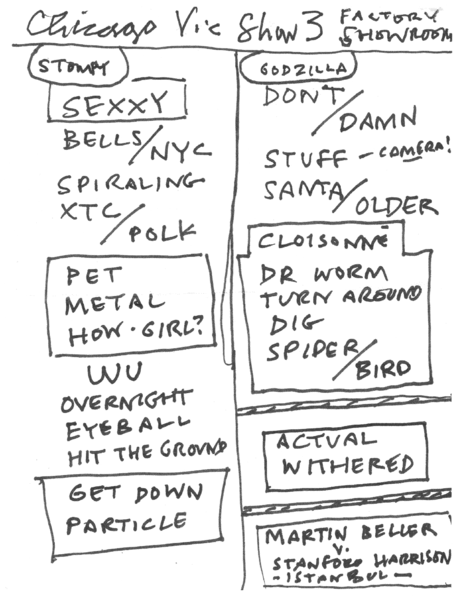 Chicago Vic Show 3 FACTORY SHOWROOM
STOMPY
SEXXY
BELLS/NYC
SPIRALING
XTC/POLK
PET
METAL
HOW · GIRL?
WU
OVERNIGHT
EYEBALL
HIT THE GROUND
GET DOWN
PARTICLE
GODZILLA
DON'T/DAMN
STUFF - CAMERA!
SANTA/OLDER
CLOISONNÉ
DR WORM
TURN AROUND
DIG
SPIDER/BIRD
ACTUAL
WITHERED
MARTIN BELLER
V.
STANFORD HARRISON
- ISTANBUL -